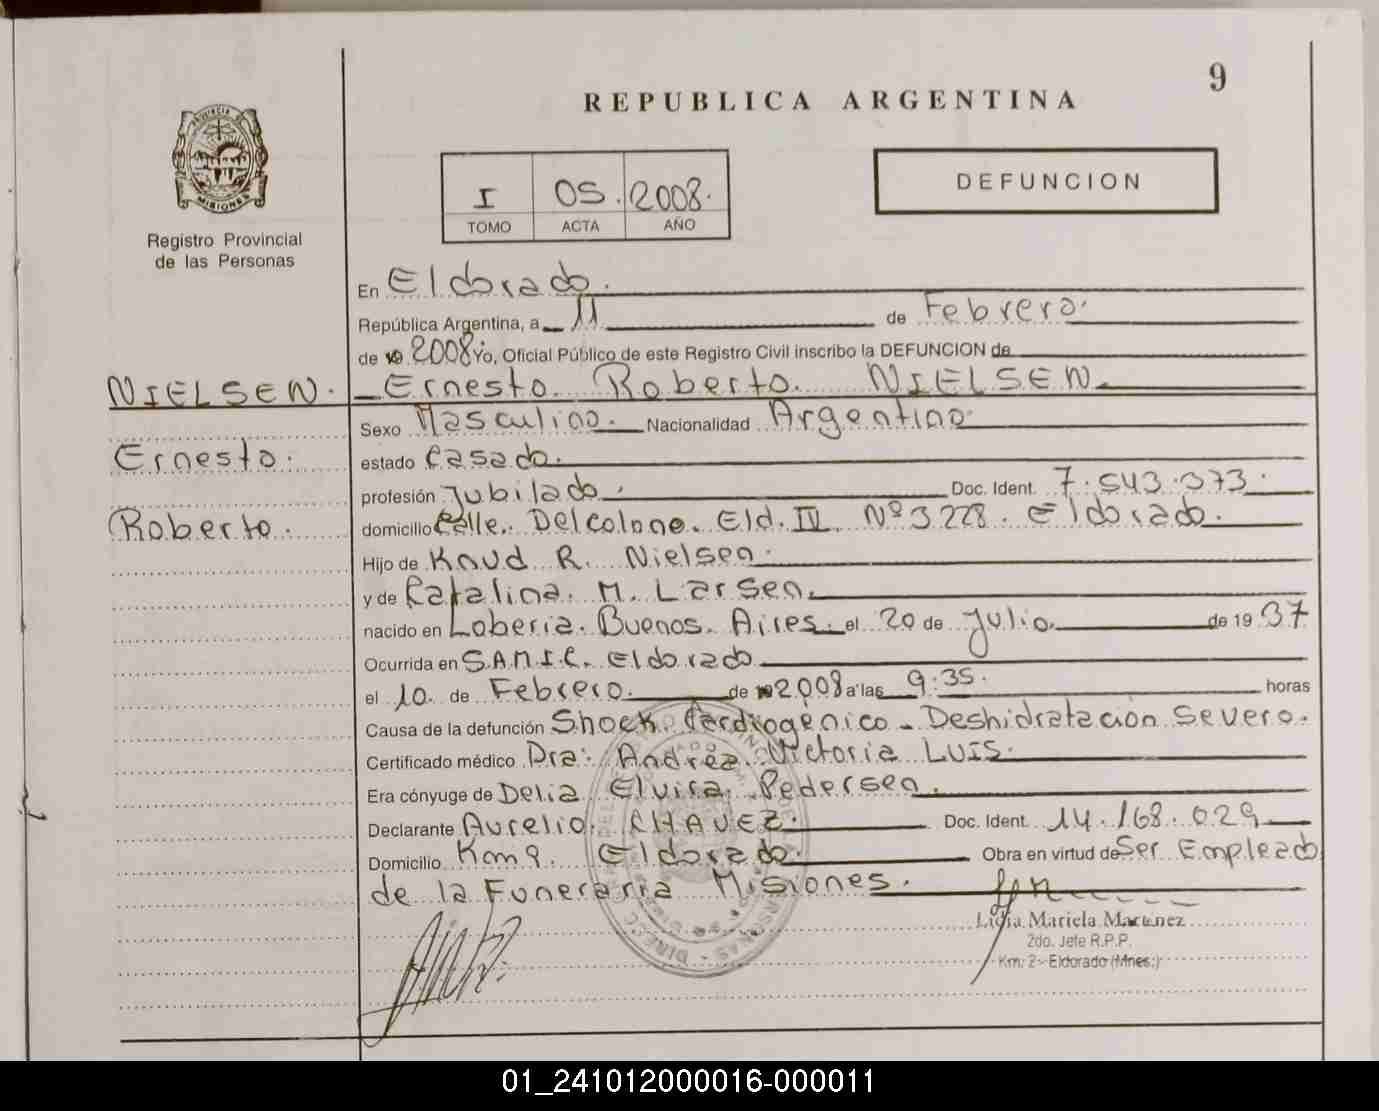 9
REPUBLICA ARGENTINA
PROVINCIA DE
MISIONES
Registro Provincial
de las Personas
I 05. 2008.
TOMO ACTA AÑO
DEFUNCION
En Eldorado.
República Argentina, a 11 de Febrero.
de 2008 Yo, Oficial Público de este Registro Civil inscribo la DEFUNCION de
NIELSEN. Ernesto Roberto. NIELSEN.
Sexo Masculino. Nacionalidad Argentino
Ernesto.
estado Casado.
profesión Jubilado. Doc. Ident. 7.543.373.
Roberto.
domicilio Calle. Delcolono. Eld. IV Nº 3228. Eldorado.
Hijo de Knud R. Nielsen.
y de Catalina. M. Larsen.
nacido en Loberia. Buenos. Aires. el 20 de Julio. de 19 37
Ocurrida en S.A.M.I.C. Eldorado
el 10. de Febrero. de 2008 a las 9:35. horas
Causa de la defunción Shock Cardiogénico - Deshidratación Severo.
Certificado médico Dra: Andréa Victoria LUIS.
Era cónyuge de Delia Elvira. Pedersen.
Declarante Aurelio. CHAVEZ. Doc. Ident. 14.168.029
Domicilio Km 9. Eldorado. Obra en virtud de Ser Empleado
de la Funeraria Misiones.
Lidia Mariela Martinez
2do. Jefe R.P.P.
Km: 2 - Eldorado (Mnes.)
01_241012000016-000011